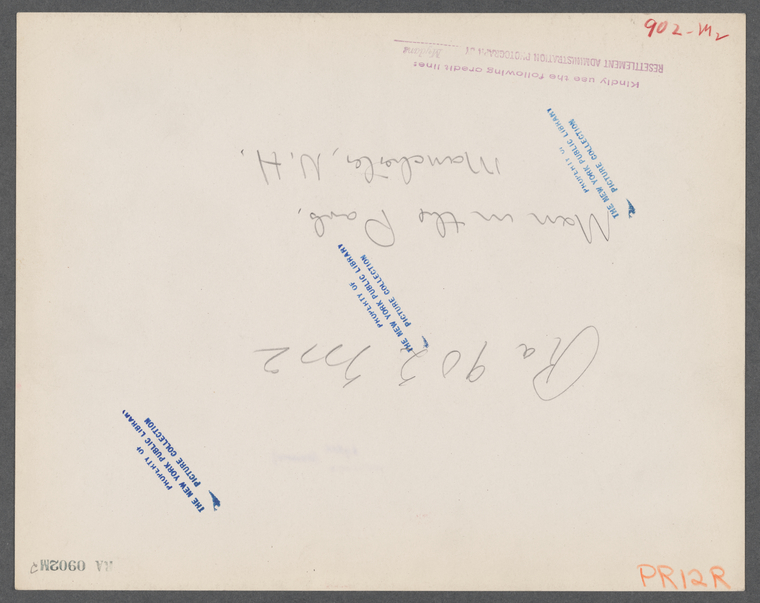 902-M2
Kindly use the following credit line:
RESETTLEMENT ADMINISTRATION PHOTOGRAPH BY
Ra 902 M2
Men in the Park,
Manchester, N.H.
PROPERTY OF
THE NEW YORK PUBLIC LIBRARY
PICTURE COLLECTION
PROPERTY OF
THE NEW YORK PUBLIC LIBRARY
PICTURE COLLECTION
PROPERTY OF
THE NEW YORK PUBLIC LIBRARY
PICTURE COLLECTION
RA 0902M2
PR12R